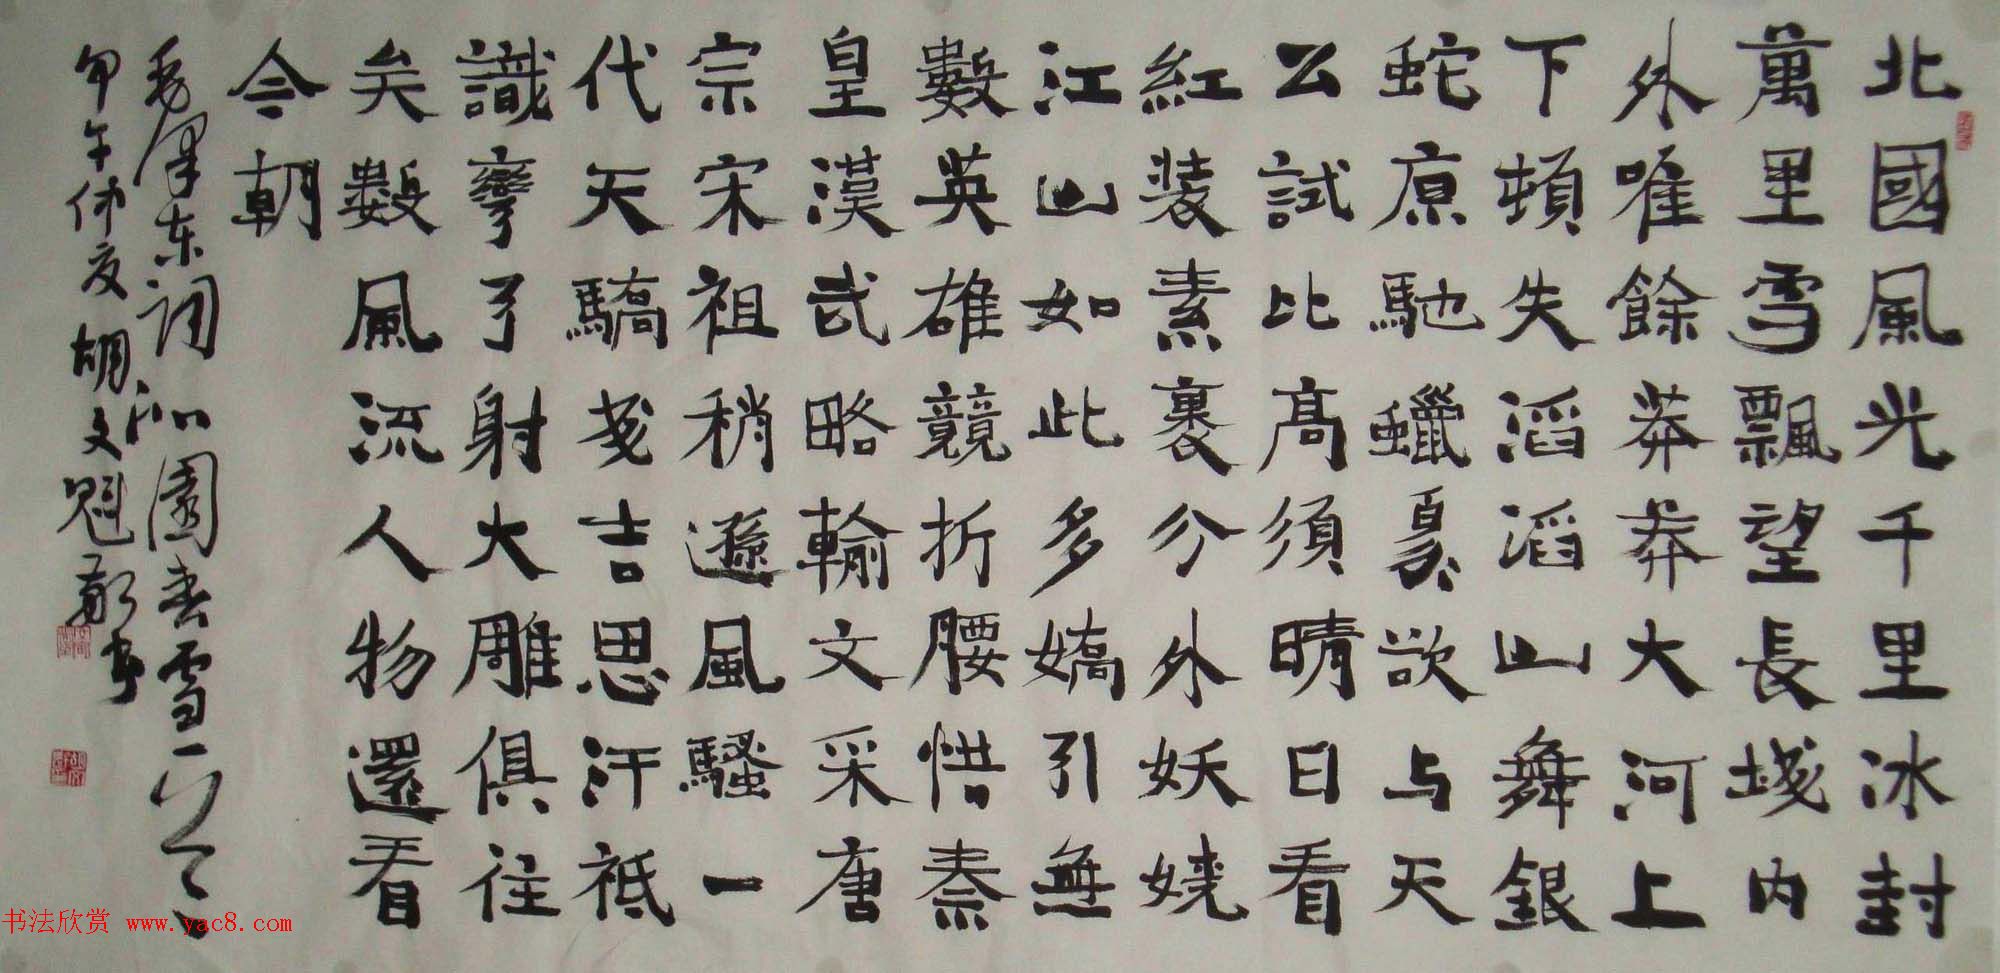 北國風光千里冰封
萬里雪飄望長城内
外唯餘莽莽大河上
下頓失滔滔山舞銀
蛇原馳蠟象欲与天
公試比高須晴日看
紅装素裹分外妖嬈
江山如此多嬌引無
數英雄競折腰惜秦
皇漢武略輸文采唐
宗宋祖稍遜風騷一
代天驕成吉思汗祗
識彎弓射大雕俱往
矣數風流人物還看
今朝
毛澤東词沁園春雪一
甲午仲夏胡文魁敬書
书法欣赏 www.yac8.com